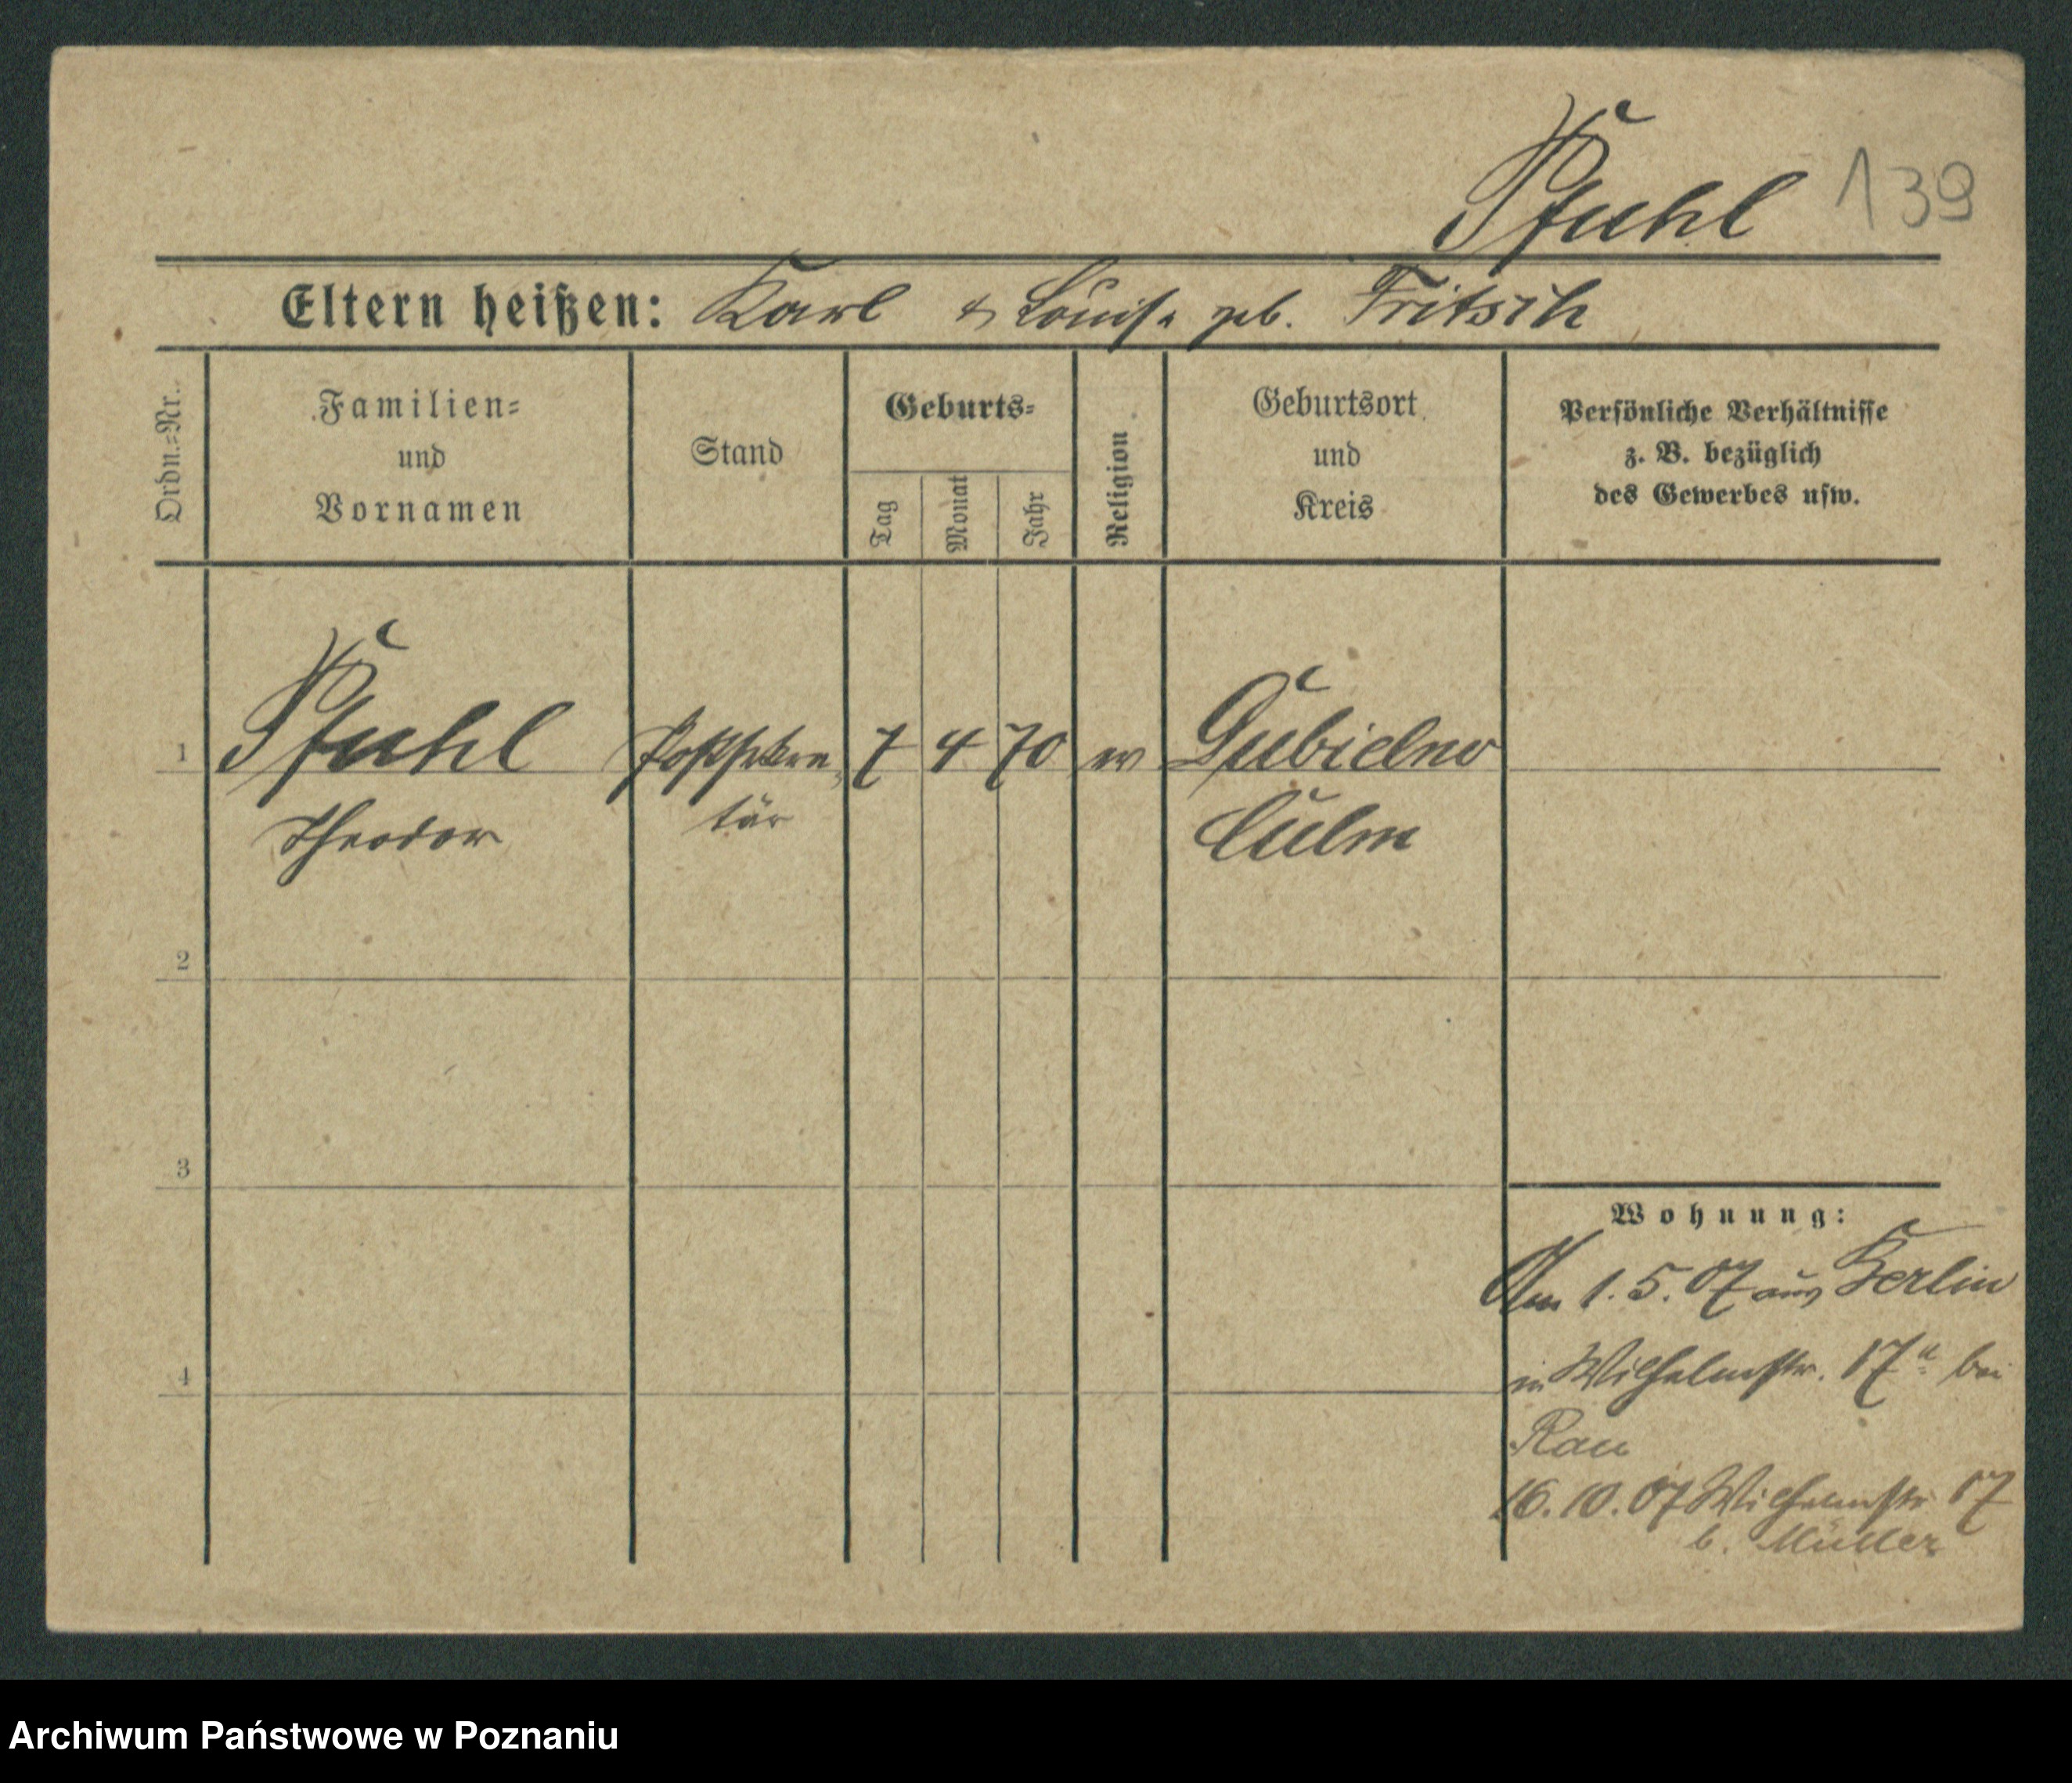 Pfuhl 139
Eltern heißen: Karl & Louise geb. Fritsch
Ordn.=Nr.
Familien=
und
Vornamen
Stand
Geburts=
Tag
Monat
Jahr
Religion
Geburtsort
und
Kreis
Persönliche Verhältnisse
z. B. bezüglich
des Gewerbes usw.
1 Pfuhl Postsekre 7 4 70 ev Gubielno
Theodor tär Culm
2
3
4
Wohnung:
Am 1. 5. 07 aus Berlin
in Wilhelmstr. 17a bei
Rau
16. 10. 07 Wilhelmstr 17
b. Müller
Archiwum Państwowe w Poznaniu